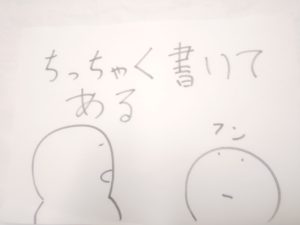 ちっちゃく書いて
ある
フン